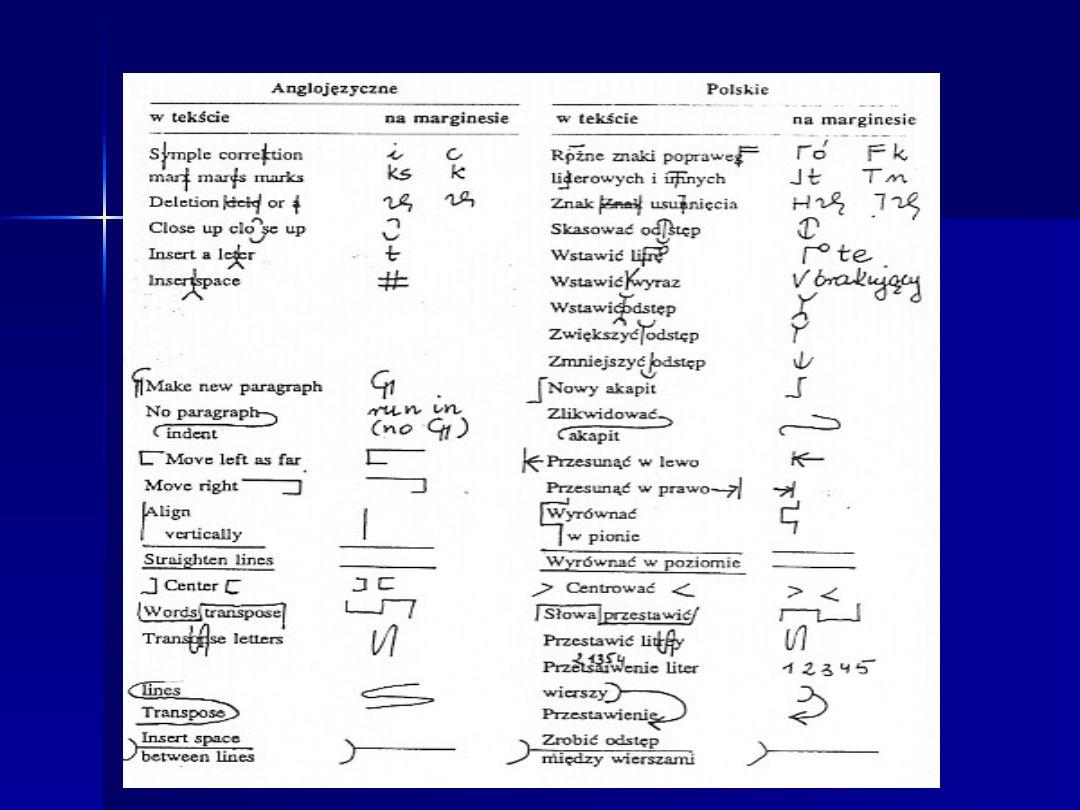 Anglojęzyczne Polskie
w tekście na marginesie w tekście na marginesie
Symple correction i c Różne znaki poprawek ó k
mark marks marks ks k literowych i innych t n
Deletion or Znak Znak usunięcia
Close up close up Skasować odstęp
Insert a leter t Wstawić te
Insert space # Wstawić wyraz brakujący
Wstawić odstęp
Zwiększyć odstęp
Zmniejszyć odstęp
¶ Make new paragraph ¶ Nowy akapit
No paragraph run in Zlikwidować
indent (no ¶) akapit
Move left as far Przesunąć w lewo
Move right Przesunąć w prawo
Align Wyrównać
vertically w pionie
Straighten lines Wyrównać w poziomie
] Center [ ] [ > Centrować < > <
Words transpose Słowa przestawić
Transpose letters Przestawić litery
21354
Przetsaiwenie liter 12345
lines wierszy
Transpose Przestawienie
Insert space Zrobić odstęp
between lines między wierszami